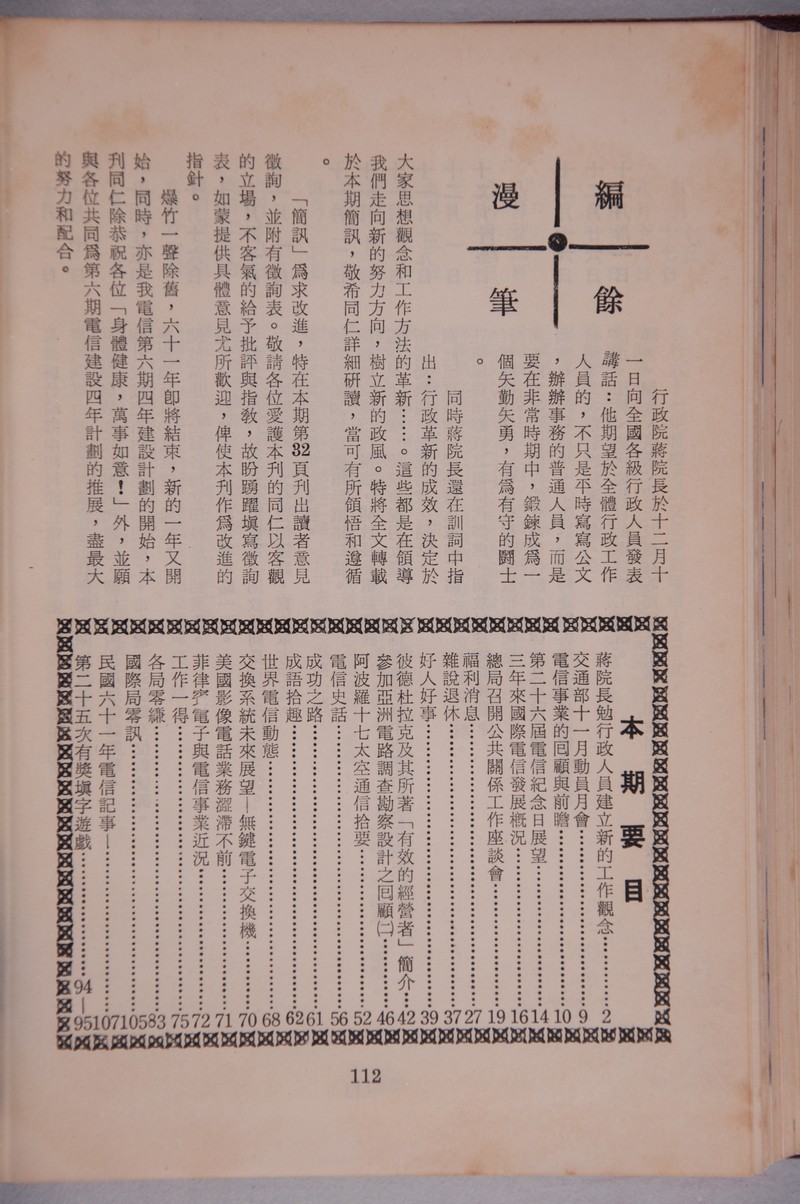 編餘
漫筆
行政院蔣院長於十二月十
一日向全國各級行政人員發表
講話：他期望於全體行政工作
人員的，不只是平時寫寫公文
，辦辦事務的普通人員，而是
要在非常時期中，鍛鍊成爲一
個矢勤矢勇，有爲有守的鬪士
。
同時蔣院長還在訓詞中指
出：行政革新的成效，決定於
大家思想觀念和工作方法的革新……。這些都是在領導
我們走向新的努力方向，樹立新的政風。特將全文轉載
於本期簡訊，敬希同仁詳細硏讀，當可有所領悟和遵循
。
「簡訊」爲求改進，特在本期第32頁刋出讀者意見
徵詢，並附有徵詢表。敬請各位愛護本刋的同仁以客觀
的立場，不客氣的給予批評與指敎，故盼踴躍塡寫徵詢
表，如蒙提供具體意見尤所歡迎，俾使本刋作爲改進的
指針。
爆竹一聲除舊，六十一年卽將結束，新的一年又開
始，同時，亦是我電信第六期四年建設計劃的開始，本
刋同仁除恭祝各位「身體健康，萬事如意！」外，並願
與各位共同爲第六期電信建設四年計劃的推展，盡最大
的努力和配合。
本期要目
蔣院長勉行政人員建立新的工作觀念…………2
交通部十一月動員月會…………9
電信事業的囘顧與前瞻…………10
第二十六屆電信紀念日展望…………14
三年來國際電信發展槪況…………16
總局召開公共關係工作座談會…………19
福利消息…………27
雜說退休…………37
好人好事…………39
彼德杜拉克及其所著「有效的經營者」簡介…………42
參加亞洲電路調查勘察設計之囘顧㈡…………46
阿波羅十七太空通信拾要…………52
電信史話…………56
成功之路…………61
成語拾趣…………62
世界電信動態…………68
交換系統未來展望—無鍵電子交換機…………70
美國影像電話業務澀滯不前…………71
菲律賓電子與電信事業近況…………72
工作一得…………75
各局零縑…………83
國際局零訊…………105
民國六十一年電信記事—…………107
第二十五次有獎塡字遊戲…………94—95
112